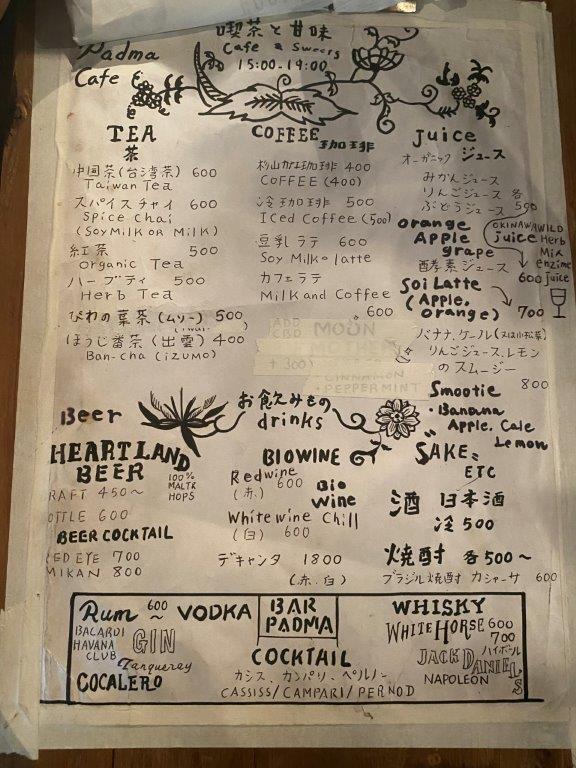 Padma
Cafe
喫茶と甘味
Cafe & Sweets
15:00-19:00
TEA
茶
中国茶(台湾茶) 600
Taiwan Tea
スパイスチャイ 600
Spice chai
(SOYMILK OR MILK)
紅茶 500
organic Tea
ハーブティ 500
Herb Tea
びわの葉茶(ムリー) 500
ほうじ番茶(出雲) 400
Ban-cha (iZUMO)
COFFEE 珈琲
杉山ガエ珈琲 400
COFFEE (400)
冷珈琲 500
Iced Coffee (500)
豆乳ラテ 600
Soy Milk latte
カフェラテ
Milk and Coffee
600
ADD
CBD
+300
MOON
CINNAMON
・PEPPERMINT
Juice
オーガニック ジュース
みかんジュース
りんごジュース 各
ぶどうジュース 500
orange
Apple
grape
juice
OKINAWA WILD
Herb
Mix
enzime
juice
酵素ジュース 600
Soi Latte
(Apple,
orange) 700
バナナ、ケール(又は小松菜)
りんごジュース、レモン
のスムージー
800
Smootie
・Banana
Apple, Cale
Lemon
お飲みもの
drinks
Beer
HEARTLAND
BEER
100%
MALT&
HOPS
RAFT 450〜
OTTLE 600
BEER COCKTAIL
RED EYE 700
MIKAN 800
BIOWINE
Redwine
(赤) 600
Bio
wine
White wine Chill
(白) 600
デキャンタ 1800
(赤.白)
"SAKE"
ETC
酒 日本酒
冷 500
焼酎 各500〜
ブラジル焼酎 カシャーサ 600
Rum 600〜
BACARDI
HAVANA
CLUB
VODKA
GIN
Tanqueray
COCALERO
BAR
PADMA
COCKTAIL
カシス、カンパリ、ペルノー
CASSISS/CAMPARI/PERNOD
WHISKY
WHITE HORSE 600
700
ハイボール
JACK DANIEL'S
NAPOLEON